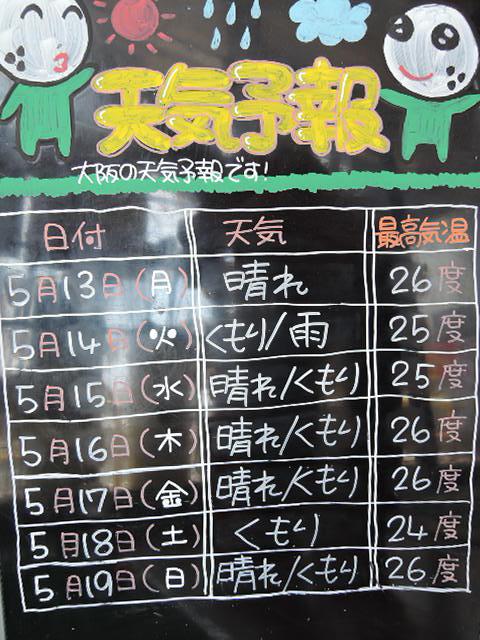 天気予報
大阪の天気予報です!
日付 天気 最高気温
5月13日(月) 晴れ 26度
5月14日(火) くもり/雨 25度
5月15日(水) 晴れ/くもり 25度
5月16日(木) 晴れ/くもり 26度
5月17日(金) 晴れ/くもり 26度
5月18日(土) くもり 24度
5月19日(日) 晴れ/くもり 26度